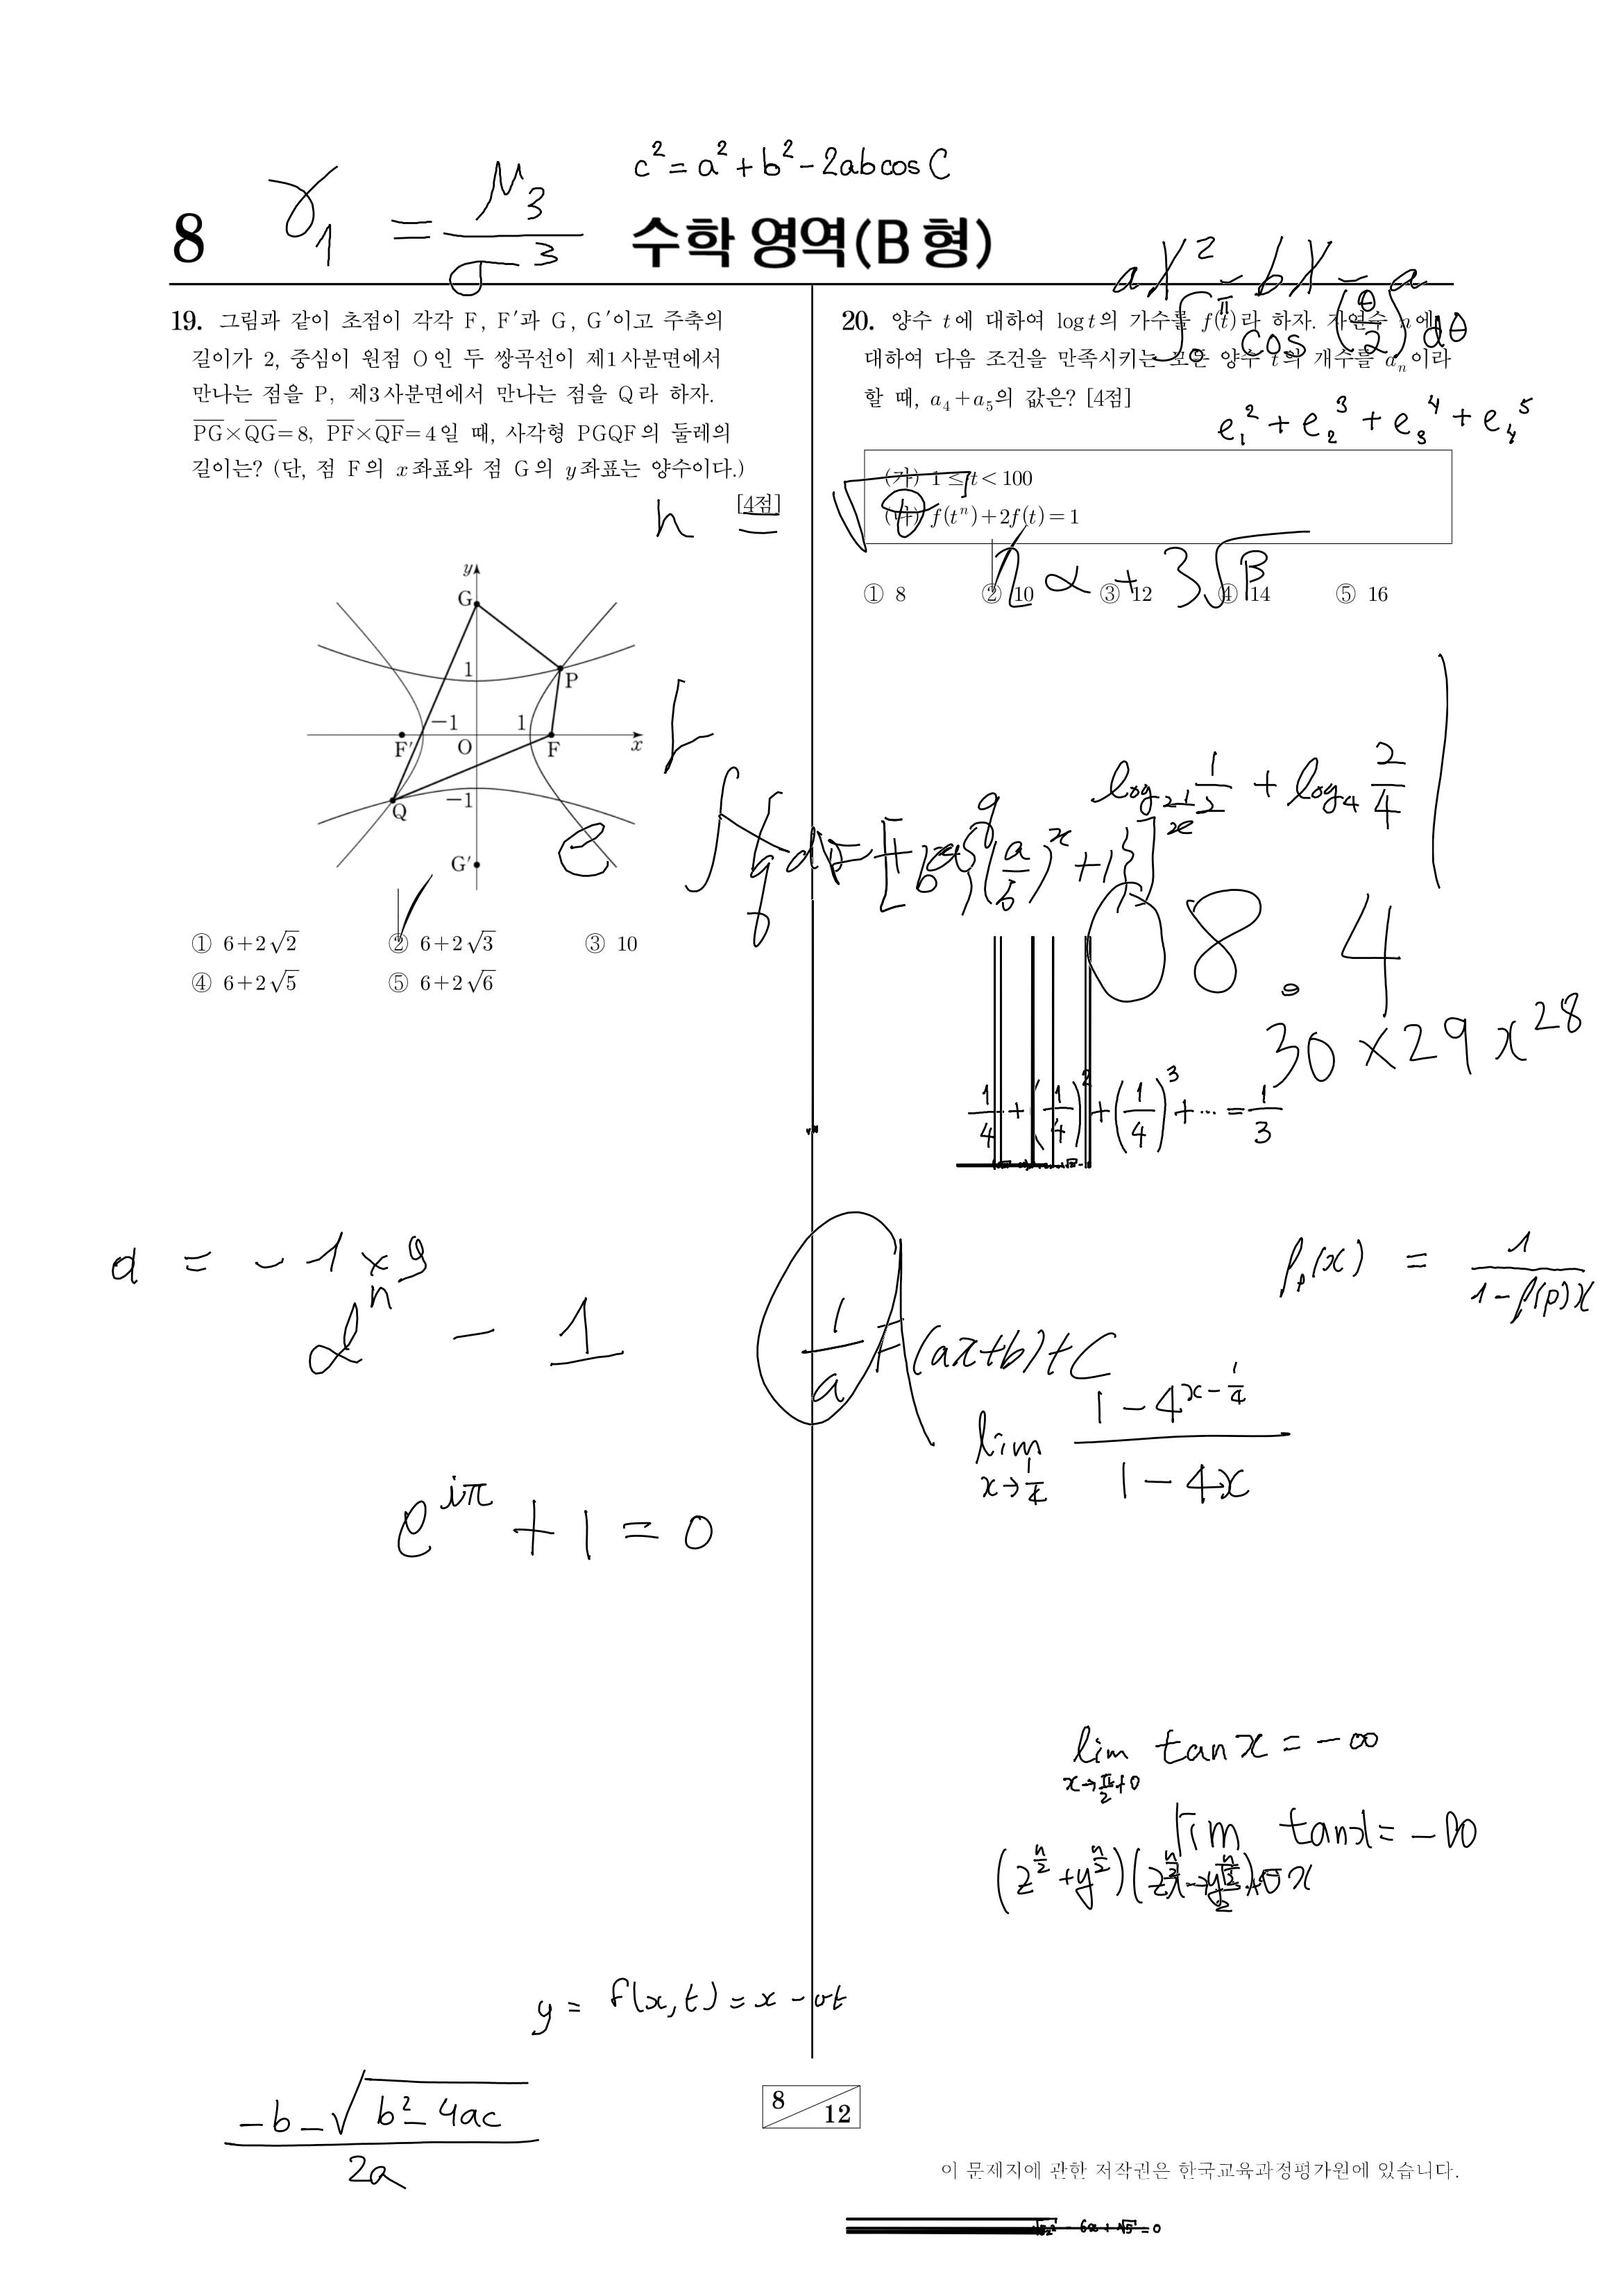 c² = a² + b² - 2ab cos C
γ₁ = μ₃/σ³
8
수학 영역(B형)
aX² - bX - a
19. 그림과 같이 초점이 각각 F, F′과 G, G′이고 주축의
길이가 2, 중심이 원점 O인 두 쌍곡선이 제1사분면에서
만나는 점을 P, 제3사분면에서 만나는 점을 Q라 하자.
PG×QG=8, PF×QF=4일 때, 사각형 PGQF의 둘레의
길이는? (단, 점 F의 x좌표와 점 G의 y좌표는 양수이다.)
[4점]
h =
y
G
1
P
-1
1
F′
O
F
x
-1
Q
G′
① 6+2√2
② 6+2√3
③ 10
④ 6+2√5
⑤ 6+2√6
20. 양수 t에 대하여 log t의 가수를 f(t)라 하자. 자연수 n에
대하여 다음 조건을 만족시키는 모든 양수 t의 개수를 aₙ이라
할 때, a₄+a₅의 값은? [4점]
∫₀^π cos(θ/2) dθ
e₁² + e₂³ + e₃⁴ + e₄⁵
(가) 1 ≤ t < 100
(나) f(tⁿ)+2f(t)=1
α + 3√β
① 8
② 10
③ 12
④ 14
⑤ 16
1/2 + log₄ 2/4
08.4
30×29x²⁸
1/4 + (1/4)² + (1/4)³ + ⋯ = 1/3
d = -1×9
αⁿ - 1
1/a F(ax+b)+C
lim x→1/4 (1-4^(x-1/4))/(1-4x)
e^(iπ) + 1 = 0
lim x→π/2+0 tan x = -∞
lim tan x = -∞
y = f(x,t) = x - vt
(-b-√(b²-4ac))/2a
8
12
이 문제지에 관한 저작권은 한국교육과정평가원에 있습니다.